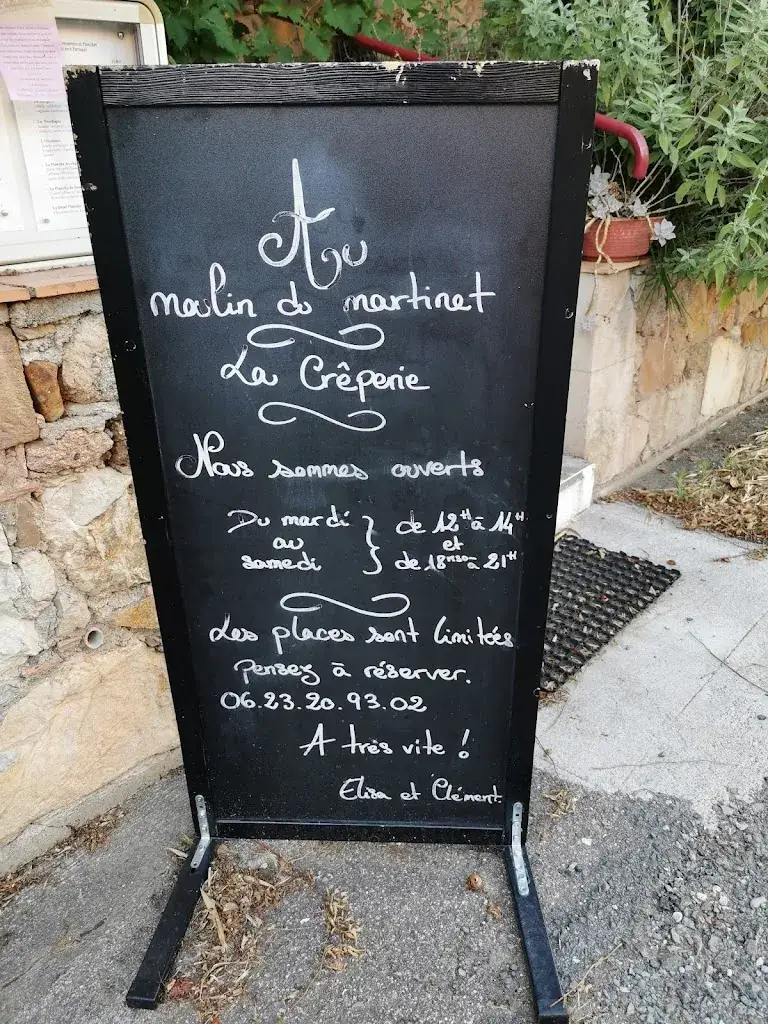 Au
moulin du martinet
La Crêperie
Nous sommes ouverts
Du mardi } de 12H à 14H
au et
samedi de 18H30 à 21H
Les places sont limitées
Pensez à réserver.
06.23.20.93.02
A très vite !
Elisa et Clément.